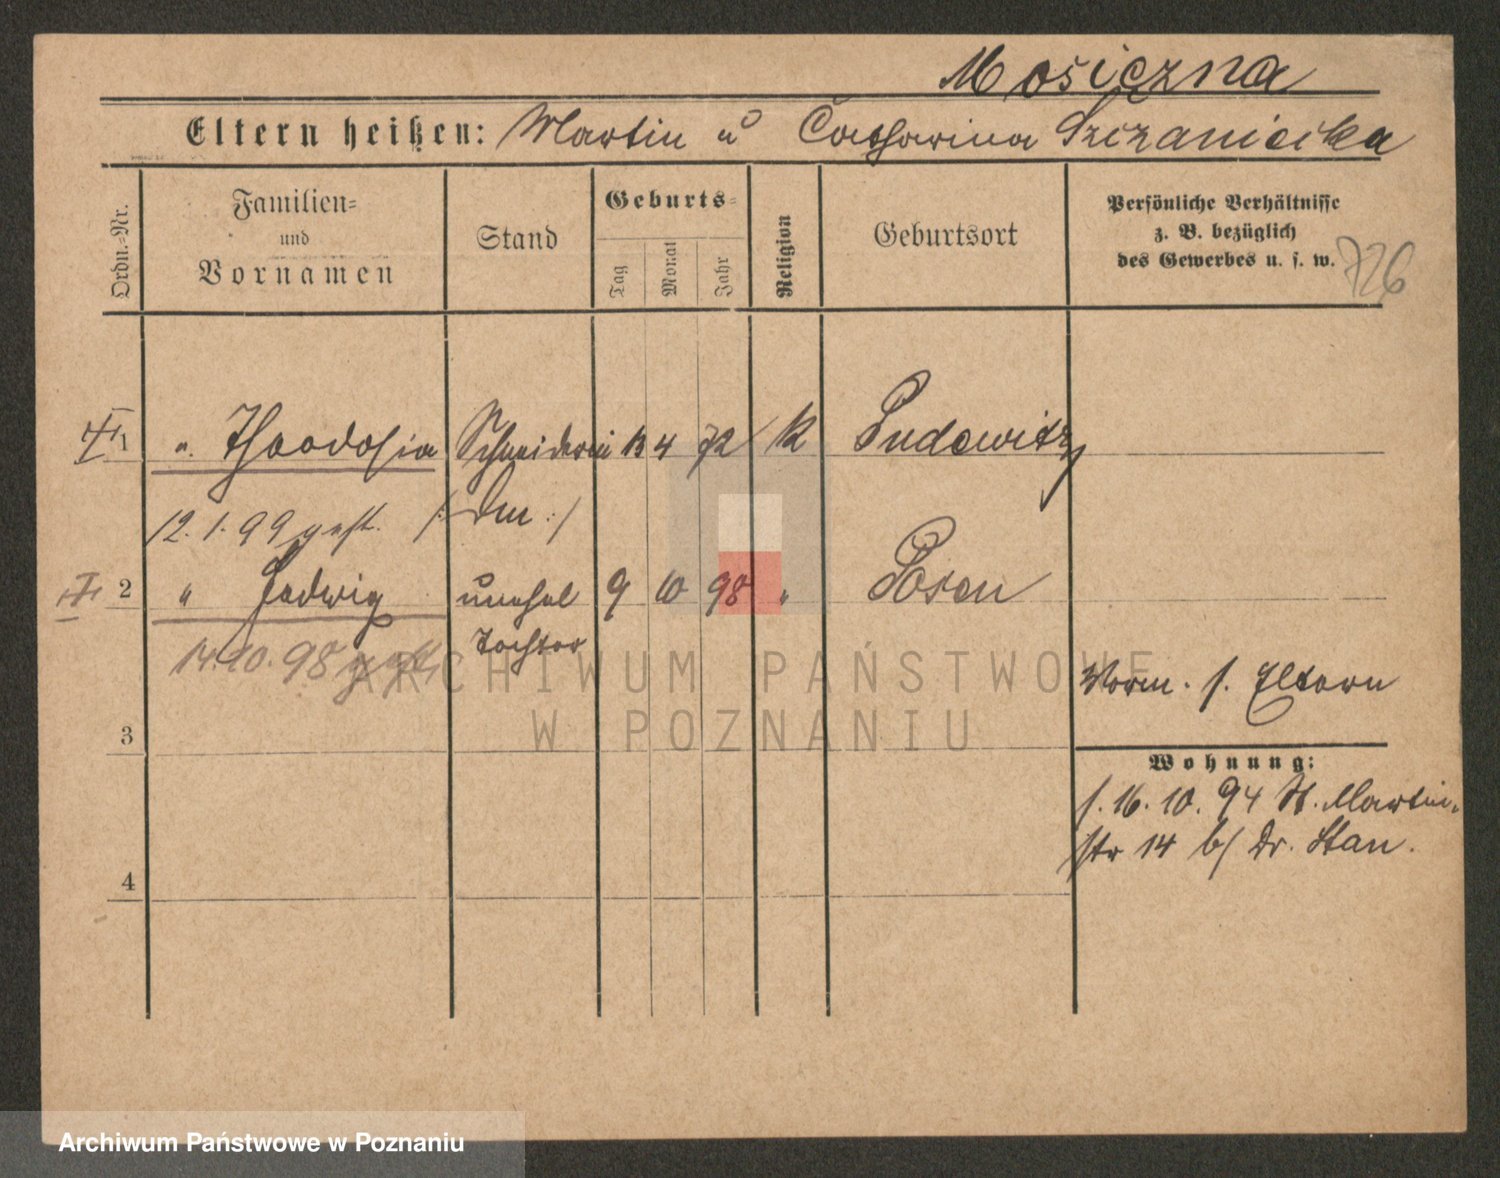 Mosiczna
Eltern heißen: Martin u Catharina Szczaniecka
Ordn.-Nr.
Familien-
und
Vornamen
Stand
Geburts-
Tag
Monat
Jahr
Religion
Geburtsort
Persönliche Verhältnisse
z. B. bezüglich
des Gewerbes u. s. w.
726
1 " Theodosia Schneiderin 13 4 72 K Pudewitz
12.1.99 gest. /: Dm :/
2 " Hedwig unehel 9 10 98 " Posen
Tochter
14.10.98
Vorm. s. Eltern
3
Wohnung:
s. 16.10.94 St. Martin-
str 14 b/ Dr. Stan.
4
ARCHIWUM PAŃSTWOWE
W POZNANIU
Archiwum Państwowe w Poznaniu